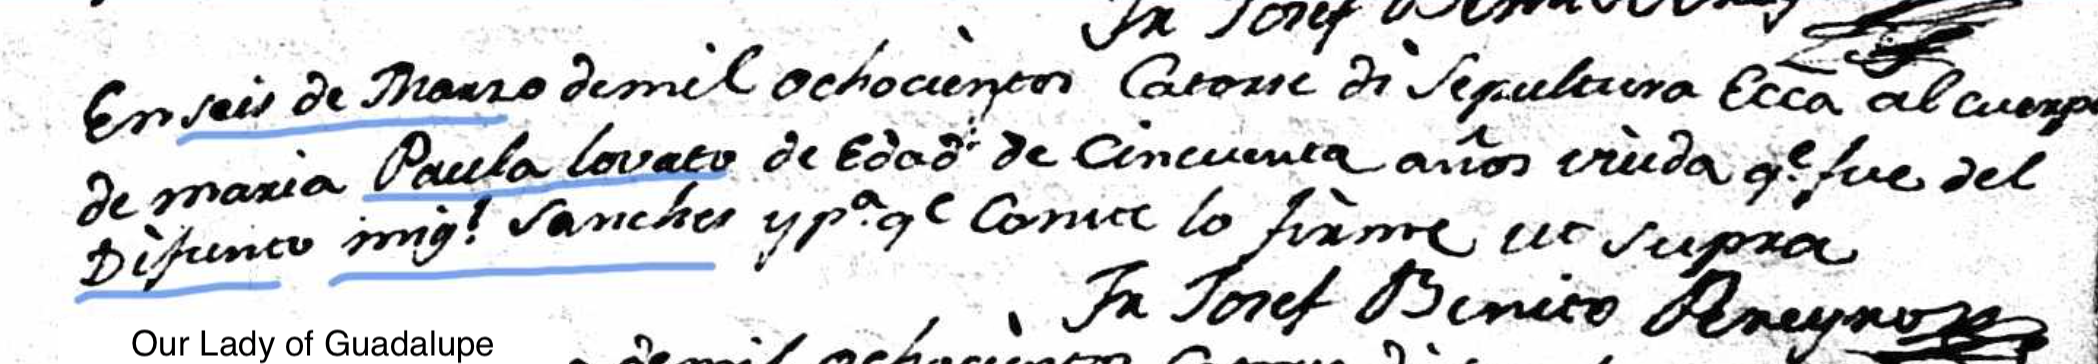 Fr Josef Benito
En seis de Marzo de mil ochocientos Catorse di Sepultura Ecca al cuerp
de maria Paula lovato de Edad de Cincuenta años viuda qe fue del
Difunto migl Sanches y pa qe Conste lo firme ut supra
Fr Josef Benito Pereyro
Our Lady of Guadalupe
de mil ochocientos Catorse di